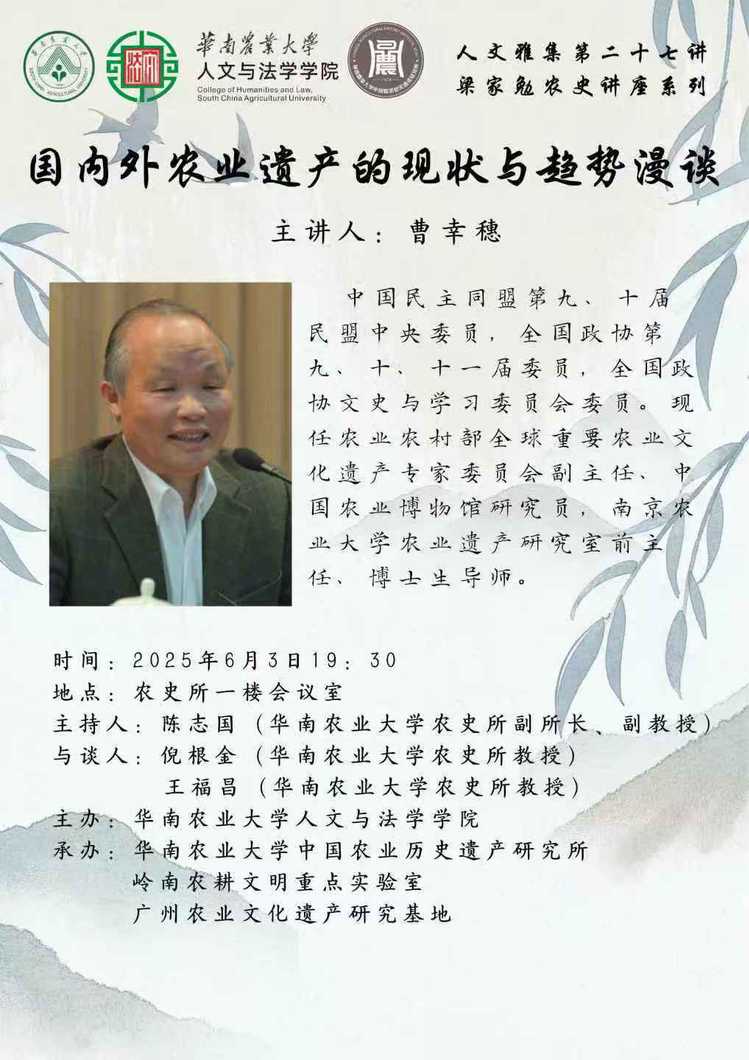 華南農業大學
人文与法学学院
College of Humanities and Law,
South China Agricultural University
人文雅集第二十七讲
梁家勉农史讲座系列
国内外农业遗产的现状与趋势漫谈
主讲人：曹幸穗
中国民主同盟第九、十届
民盟中央委员，全国政协第
九、十、十一届委员，全国政
协文史与学习委员会委员。现
任农业农村部全球重要农业文
化遗产专家委员会副主任、中
国农业博物馆研究员，南京农
业大学农业遗产研究室前主
任、博士生导师。
时间：2025年6月3日19：30
地点：农史所一楼会议室
主持人：陈志国（华南农业大学农史所副所长、副教授）
与谈人：倪根金（华南农业大学农史所教授）
王福昌（华南农业大学农史所教授）
主办：华南农业大学人文与法学学院
承办：华南农业大学中国农业历史遗产研究所
岭南农耕文明重点实验室
广州农业文化遗产研究基地